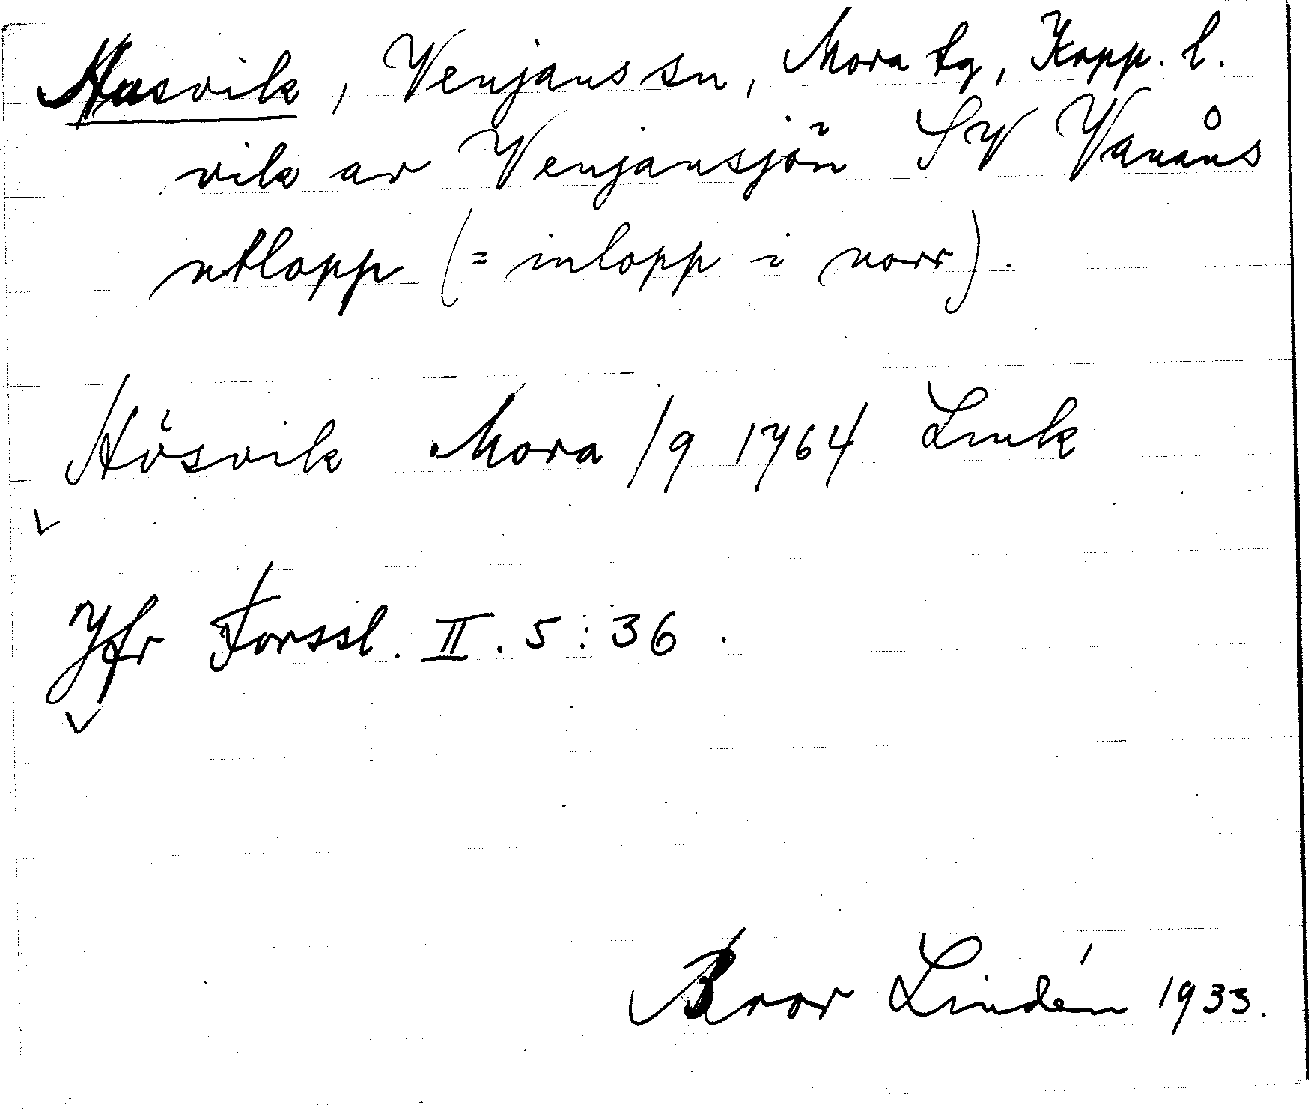 Husvik, Venjans sn, Mora tg, Kopp. l.
vik av Venjansjön SV Vanåns
utlopp (= inlopp i norr).
Hösvik Mora /9 1764 Link
Jfr Forssl. II. 5:36.
Bror Lindén 1933.